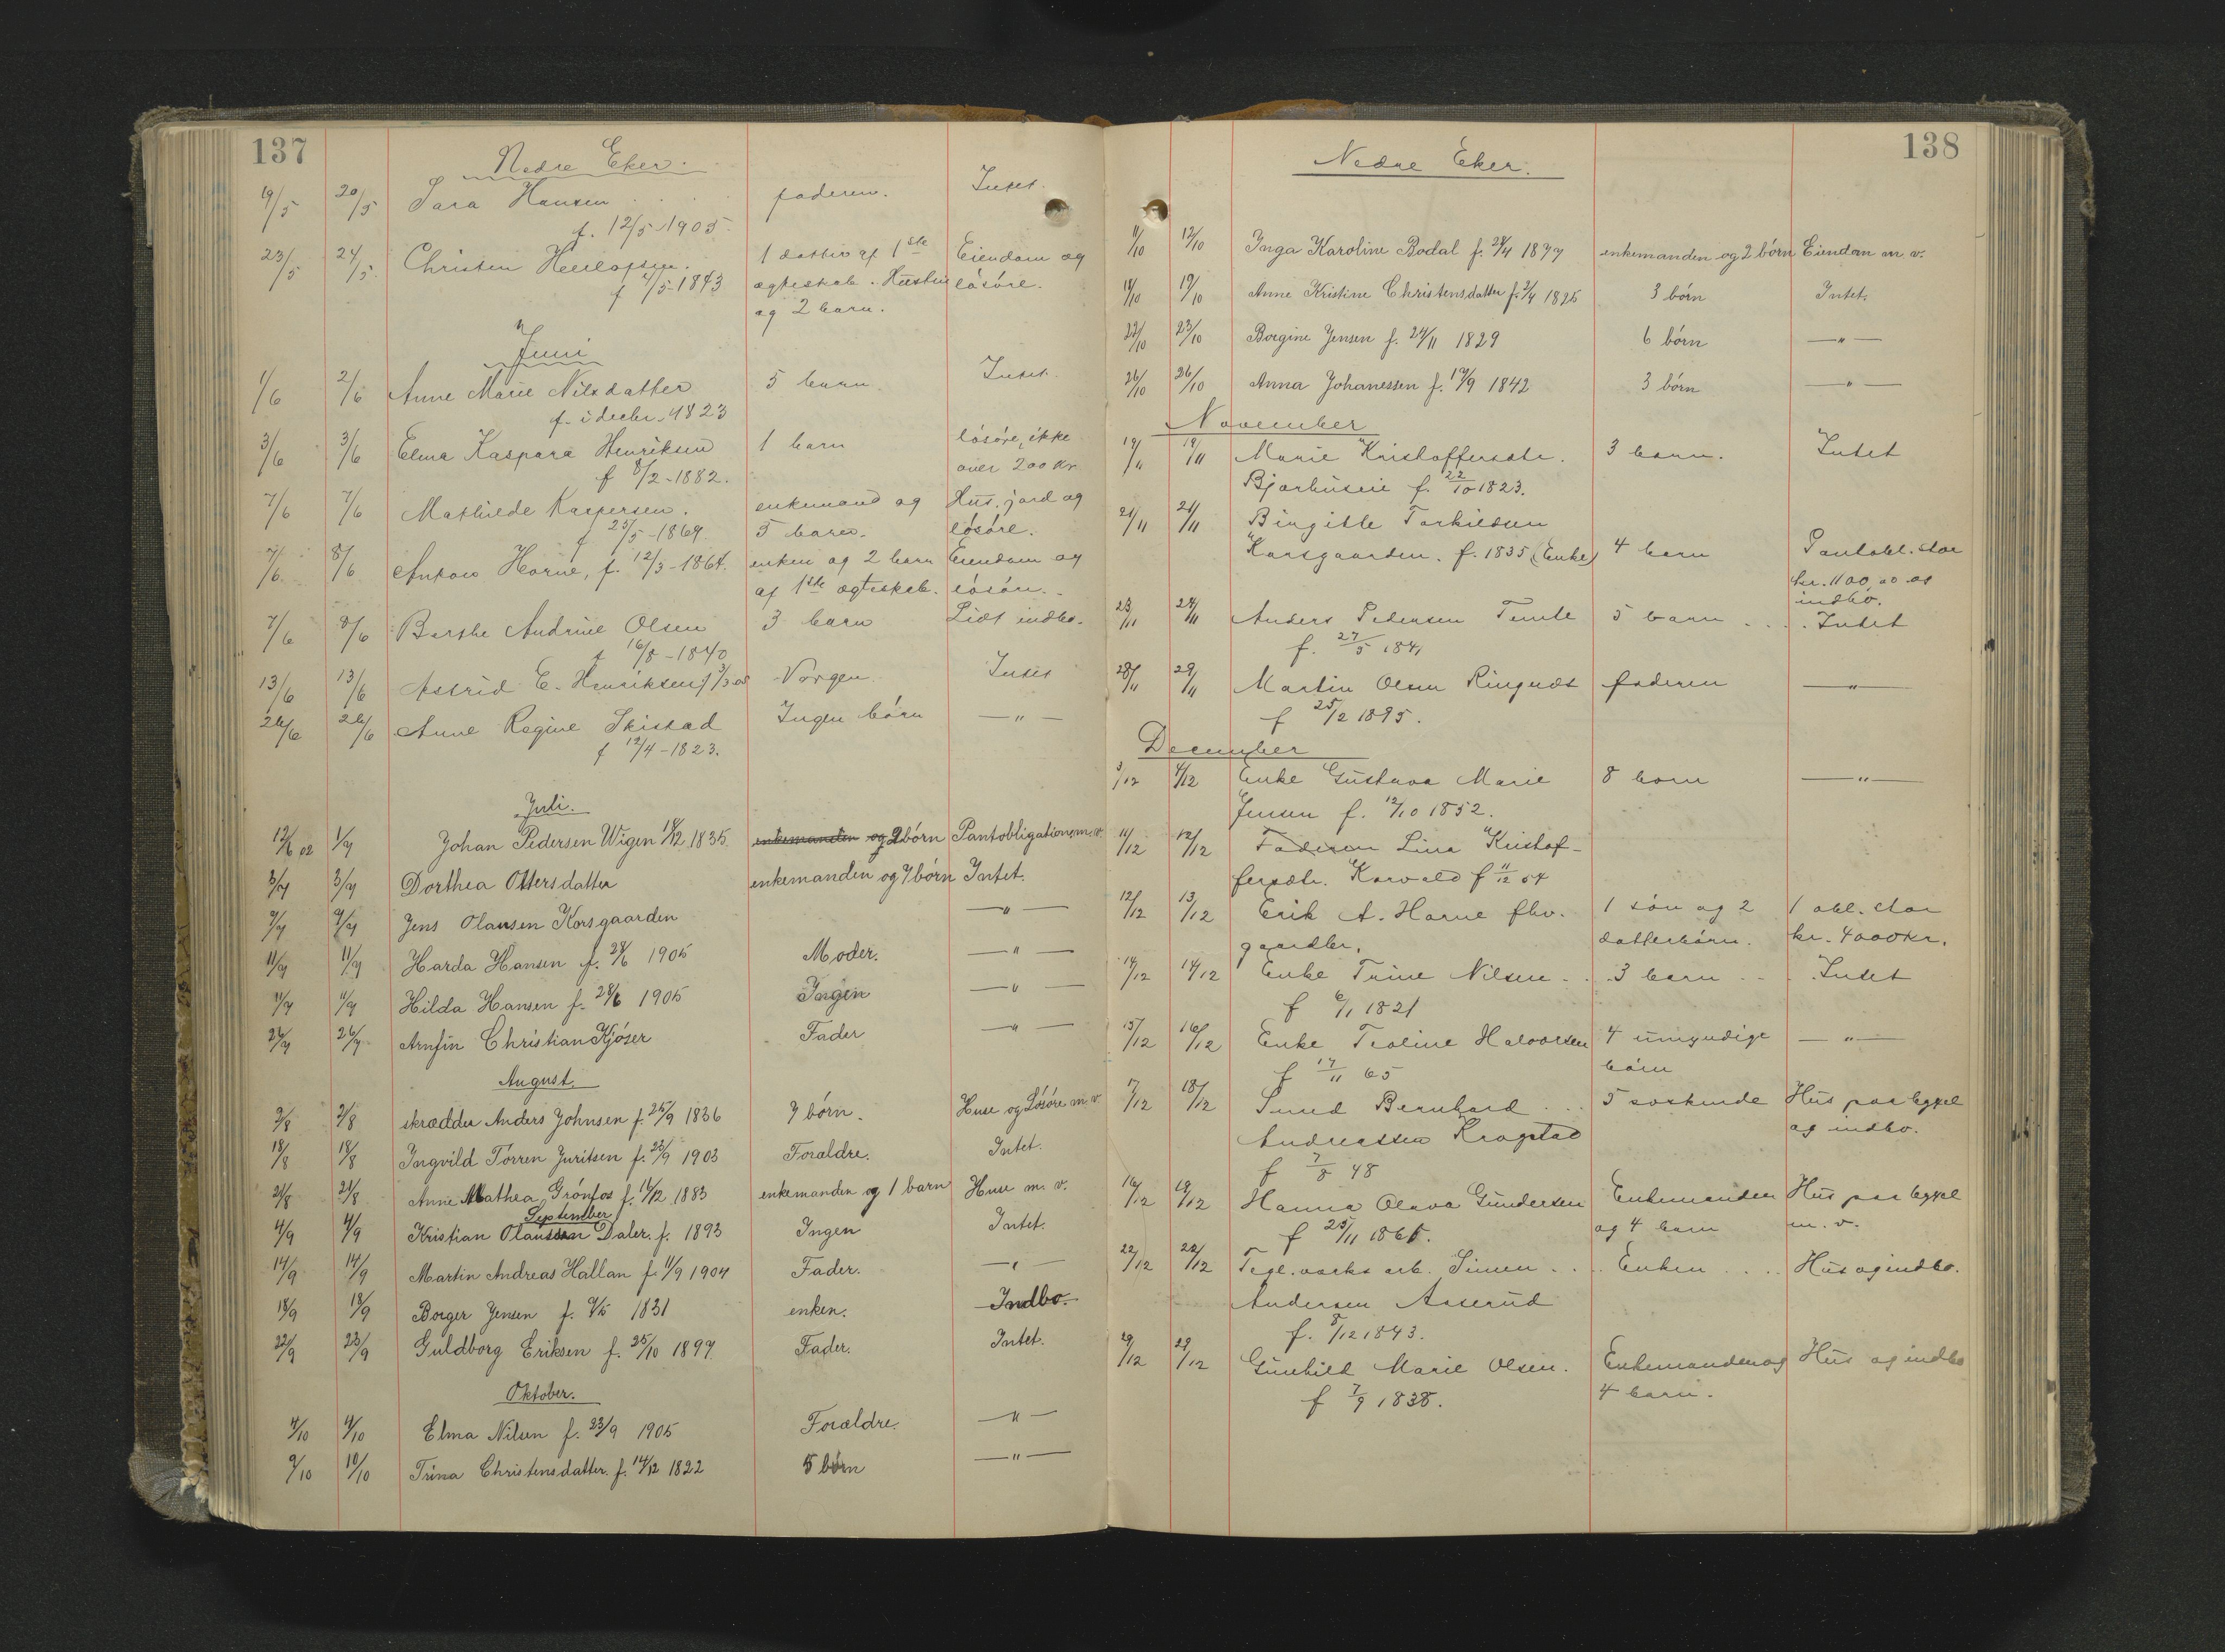 137
Nedre Eker.
19/5 20/5 Sara Hansen faderen. Intet.
f. 12/5-1905.
23/5 24/5 Christen 1 datter af 1ste Eiendom og
f 4/5-1843 ægteskab. Hustru løsøre.
og 2 barn.
Juni
1/6 2/6 Anne Marie Nilsdatter 5 barn. Intet.
f. i decbr. 1823
3/6 3/6 Elma Kaspara Henriksen 1 barn løsøre, ikke
f 8/2-1882. over 200 Kr.
7/6 7/6 Mathilde Kaspersen. enkemand og Hus, jord og
f 25/5-1869 5 barn. løsøre.
7/6 8/6 Anton Horne, f. 12/3-1864. enken og 2 barn Eiendom og
af 1ste ægteskab. løsøre.
7/6 8/6 Berthe Andrine Olsen 3 barn Lidt indbo.
f 16/8-1840
13/6 13/6 Astrid E. Henriksen Vorgen Intet
26/6 26/6 Anne Regine Skistad Ingen børn — " —
f 12/4-1823.
Juli.
12/6 02 1/7 Johan Pedersen Wigen 18/12 1835. enkemanden og 2 børn Pantobligation m. v.
3/7 3/7 Dorthea Ottersdatter enkemanden og 7 børn Intet.
9/7 9/7 Jens Olausen Korsgaarden — " —
11/7 11/7 Harda Hansen f. 28/6 1905 Moder. — " —
11/7 11/7 Hilda Hansen f. 28/6 1905 Ingen — " —
26/7 26/7 Arnfin Christian Kjøser Fader — " —
August.
2/8 2/8 skrædder Anders Johnsen f. 25/9 1836 7 børn. Huse og Løsøre m. v.
18/8 18/8 Ingvild Torren Juritsen f. 23/9 1903 Forældre. Intet.
21/8 21/8 Anne Mathea Grønfos f. 16/12 1883 enkemanden og 1 barn Huse m. v.
September
4/9 4/9 Kristian Olaussen Daler. f. 1893 Ingen Intet.
14/9 14/9 Martin Andreas Hallan f. 11/9 1904 Fader. — " —
18/9 18/9 Borger Jensen f. 9/5 1831 enken. Indbo.
22/9 23/9 Guldborg Eriksen f. 25/10 1897 Fader. Intet.
Oktober.
4/10 4/10 Elma Nilsen f. 23/9 1905 Forældre. — " —
9/10 10/10 Trina Christensdatter f. 14/12 1822 5 børn — " —
138
Nedre Eker.
11/10 12/10 Inga Karoline Bodal f. 28/4 1877 enkemanden og 2 børn Eiendom m. v.
18/10 19/10 Anne Kristine Christensdatter f. 2/4 1825 3 børn Intet.
22/10 23/10 Borgine Jensen f. 24/11 1829 6 børn — " —
26/10 26/10 Anna Johanessen f. 19/9 1842 3 børn — " —
November
19/11 19/11 Marie Kristoffersdtr. 3 barn. Intet
f. 22/10 1823.
21/11 21/11 Birgitte Torkildsen
Korsgaarden. f. 1835 (Enke) 4 barn Pantobl. stor
kr. 1100,00 og
indbo.
23/11 24/11 Anders Pedersen Temte 5 barn . . . . Intet
f. 27/5 1841
28/11 29/11 Martin Olsen faderen — " —
f 25/2 1895.
December
3/12 4/12 Enke Gustava Marie 8 barn — " —
Jensen f. 12/10 1852.
11/12 12/12 Faderen Lina Kristof-
fersdtr. Korvald f 11/12 54
12/12 13/12 Erik A. Horne fhv. 1 søn og 2 1 obl. stor
gaardbr. datterbørn. kr. 4000 kr.
14/12 14/12 Enke Trine Nilsen . . . 3 barn . . . Intet
f 6/1 1821
15/12 16/12 Enke Teoline Halvorsen 4 umyndige — " —
f 17/11 65 børn
17/12 18/12 Smed Bernhard . . . 5 søskende Hus paa bygsel
Andreassen Krogstad og indbo.
f 7/8 48
16/12 19/12 Hanna Olava Gundersen Enkemanden Hus paa bygsel
f 25/11 1865. og 4 barn m. v.
22/12 22/12 Tegl.værks arb. Simen . . . Enken . . . Hus og indbo.
Andersen Asserud
f. 8/12 1843.
29/12 29/12 Gunhild Marie Olsen. Enkemanden og Hus og indbo
f 7/9 1838. 4 barn.